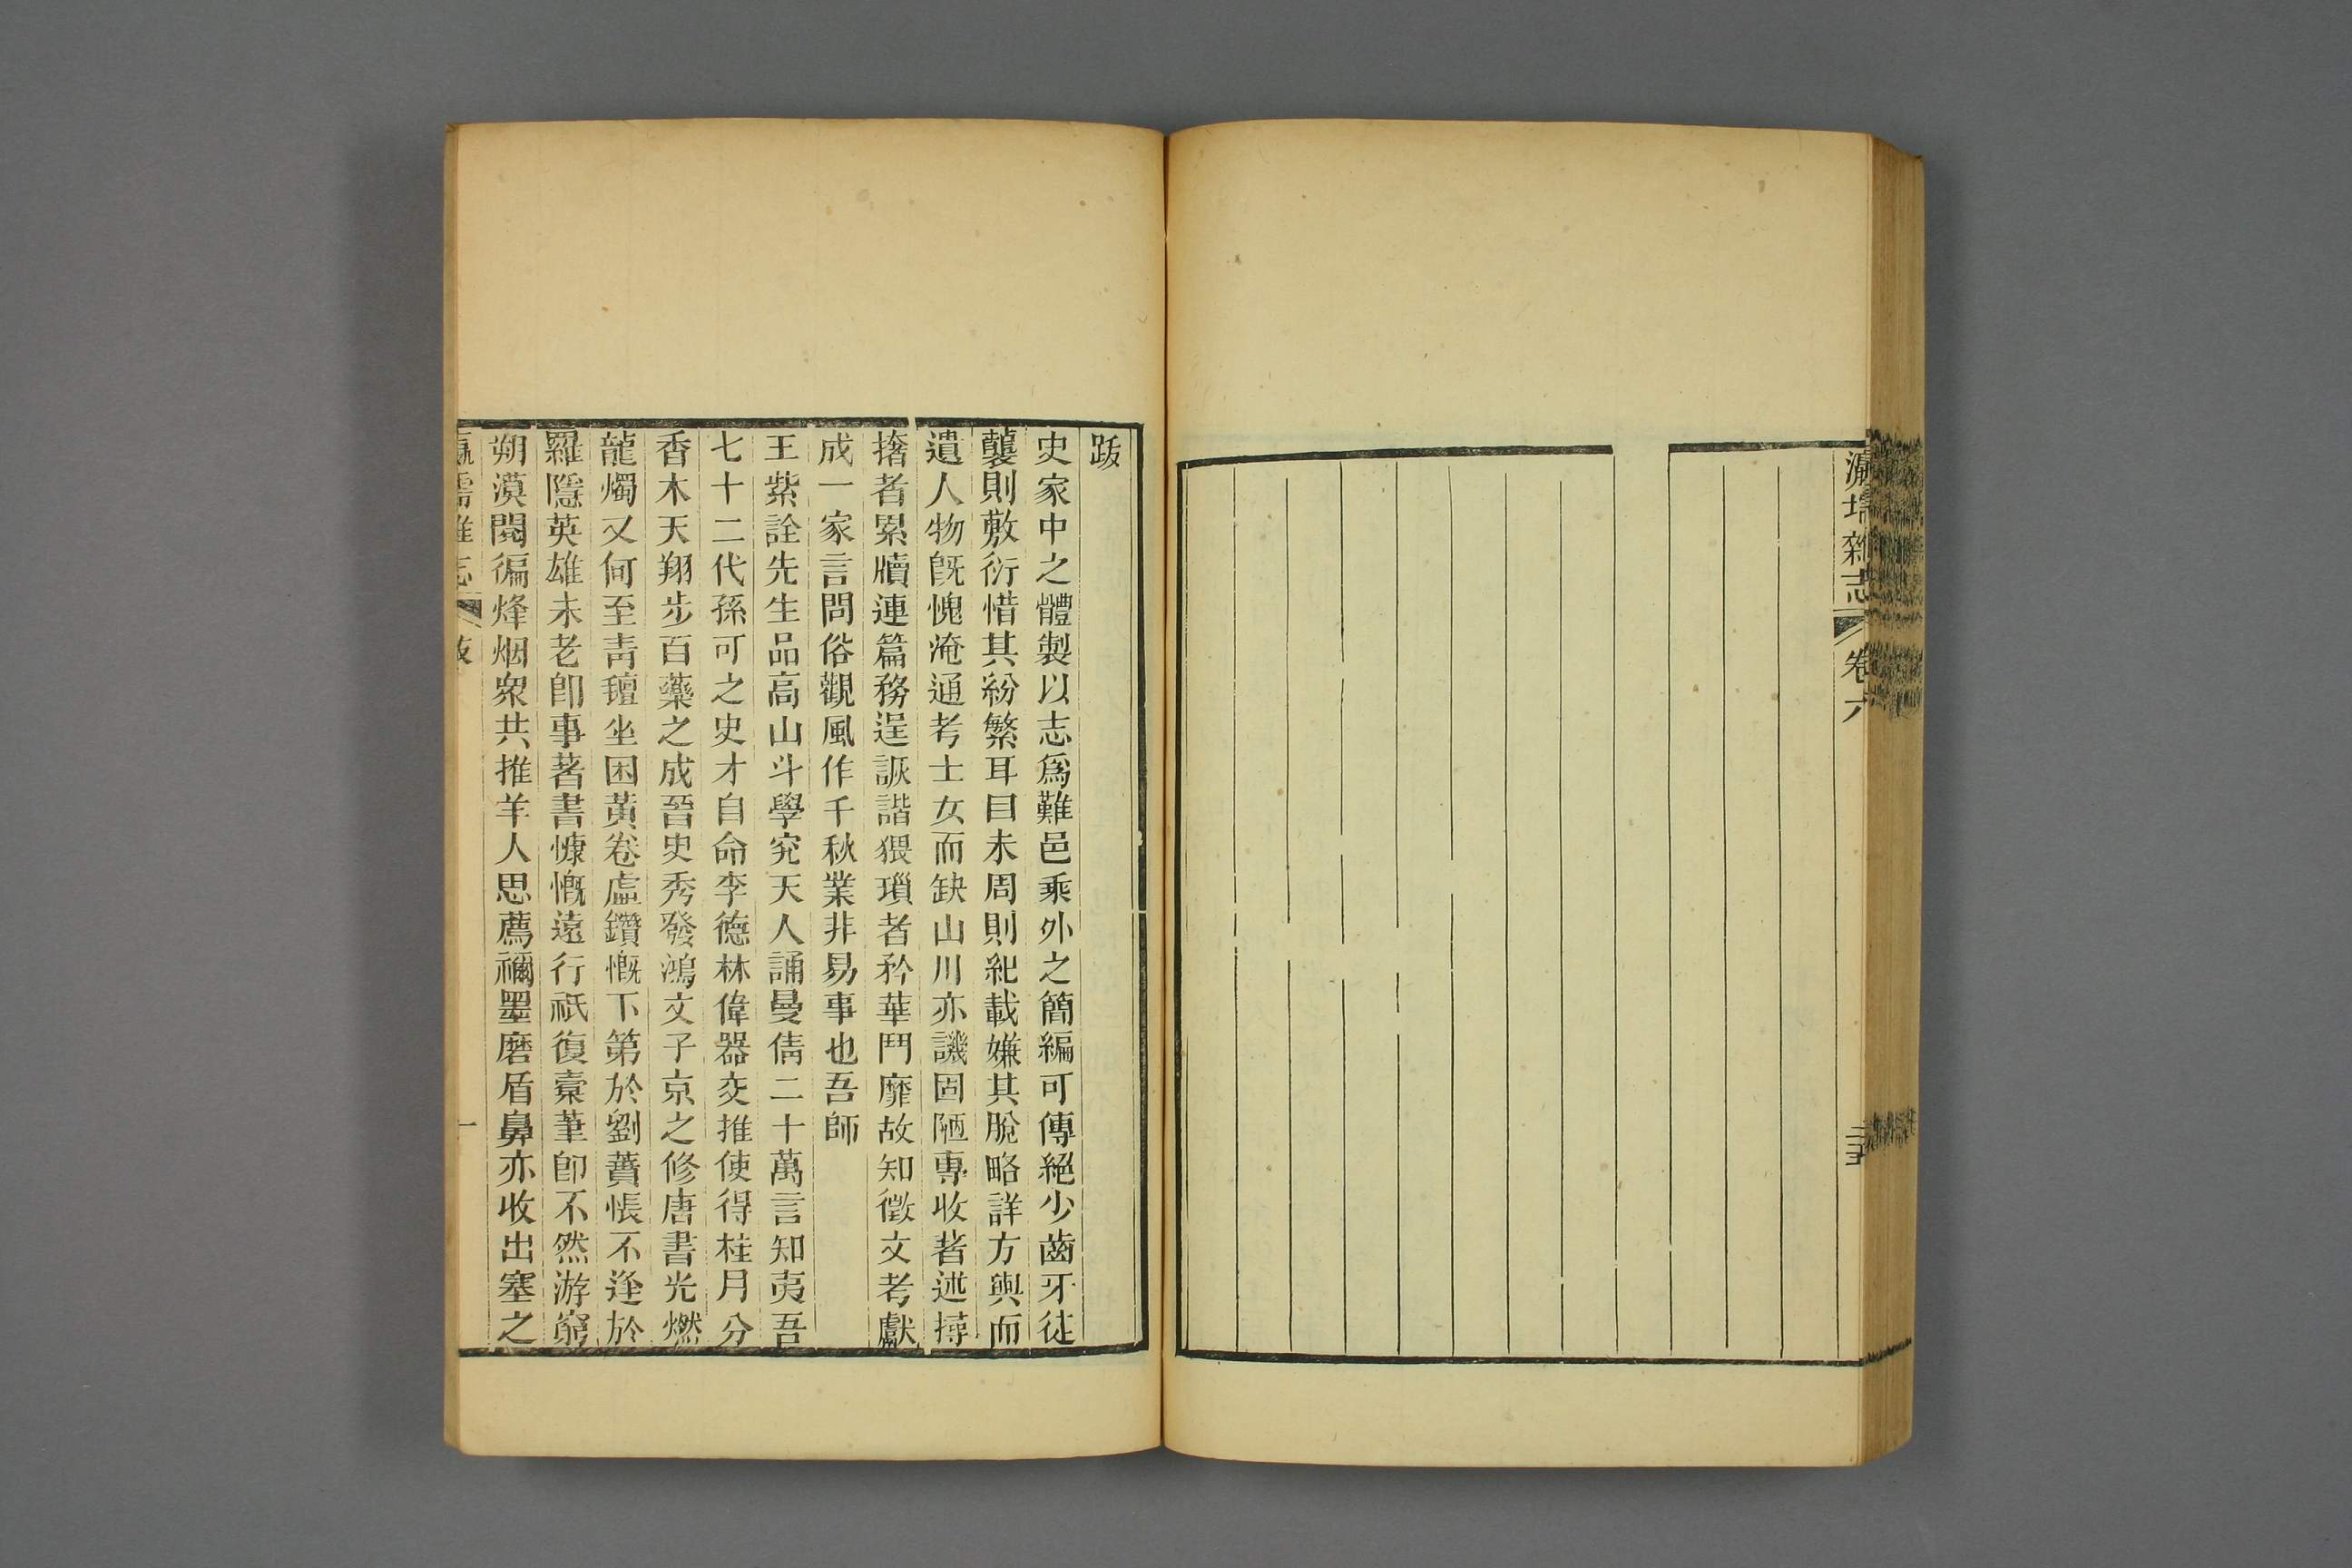 瀛壖雜志
卷六
三五
跋
史家中之體製以志爲難邑乘外之簡編可傳絕少齒牙徒
襲則敷衍惜其紛繁耳目未周則紀載嫌其脫略詳方輿而
遺人物旣愧淹通考士女而缺山川亦譏固陋專收著述撏
撦者累牘連篇務逞詼諧猥瑣者矜華鬥靡故知徵文考獻
成一家言問俗觀風作千秋業非易事也吾師
王紫詮先生品高山斗學究天人誦曼倩二十萬言知夷吾
七十二代孫可之史才自命李德林偉器交推使得桂月分
香木天翔步百藥之成晉史秀發鴻文子京之修唐書光燃
龍燭又何至靑氊坐困黃卷虛鑽慨下第於劉蕡悵不逢於
羅隱英雄未老卽事著書慷慨遠行祇復橐筆卽不然游窮
朔漠閱徧烽烟衆共推羊人思薦禰墨磨盾鼻亦收出塞之
瀛壖雜志
跋
一